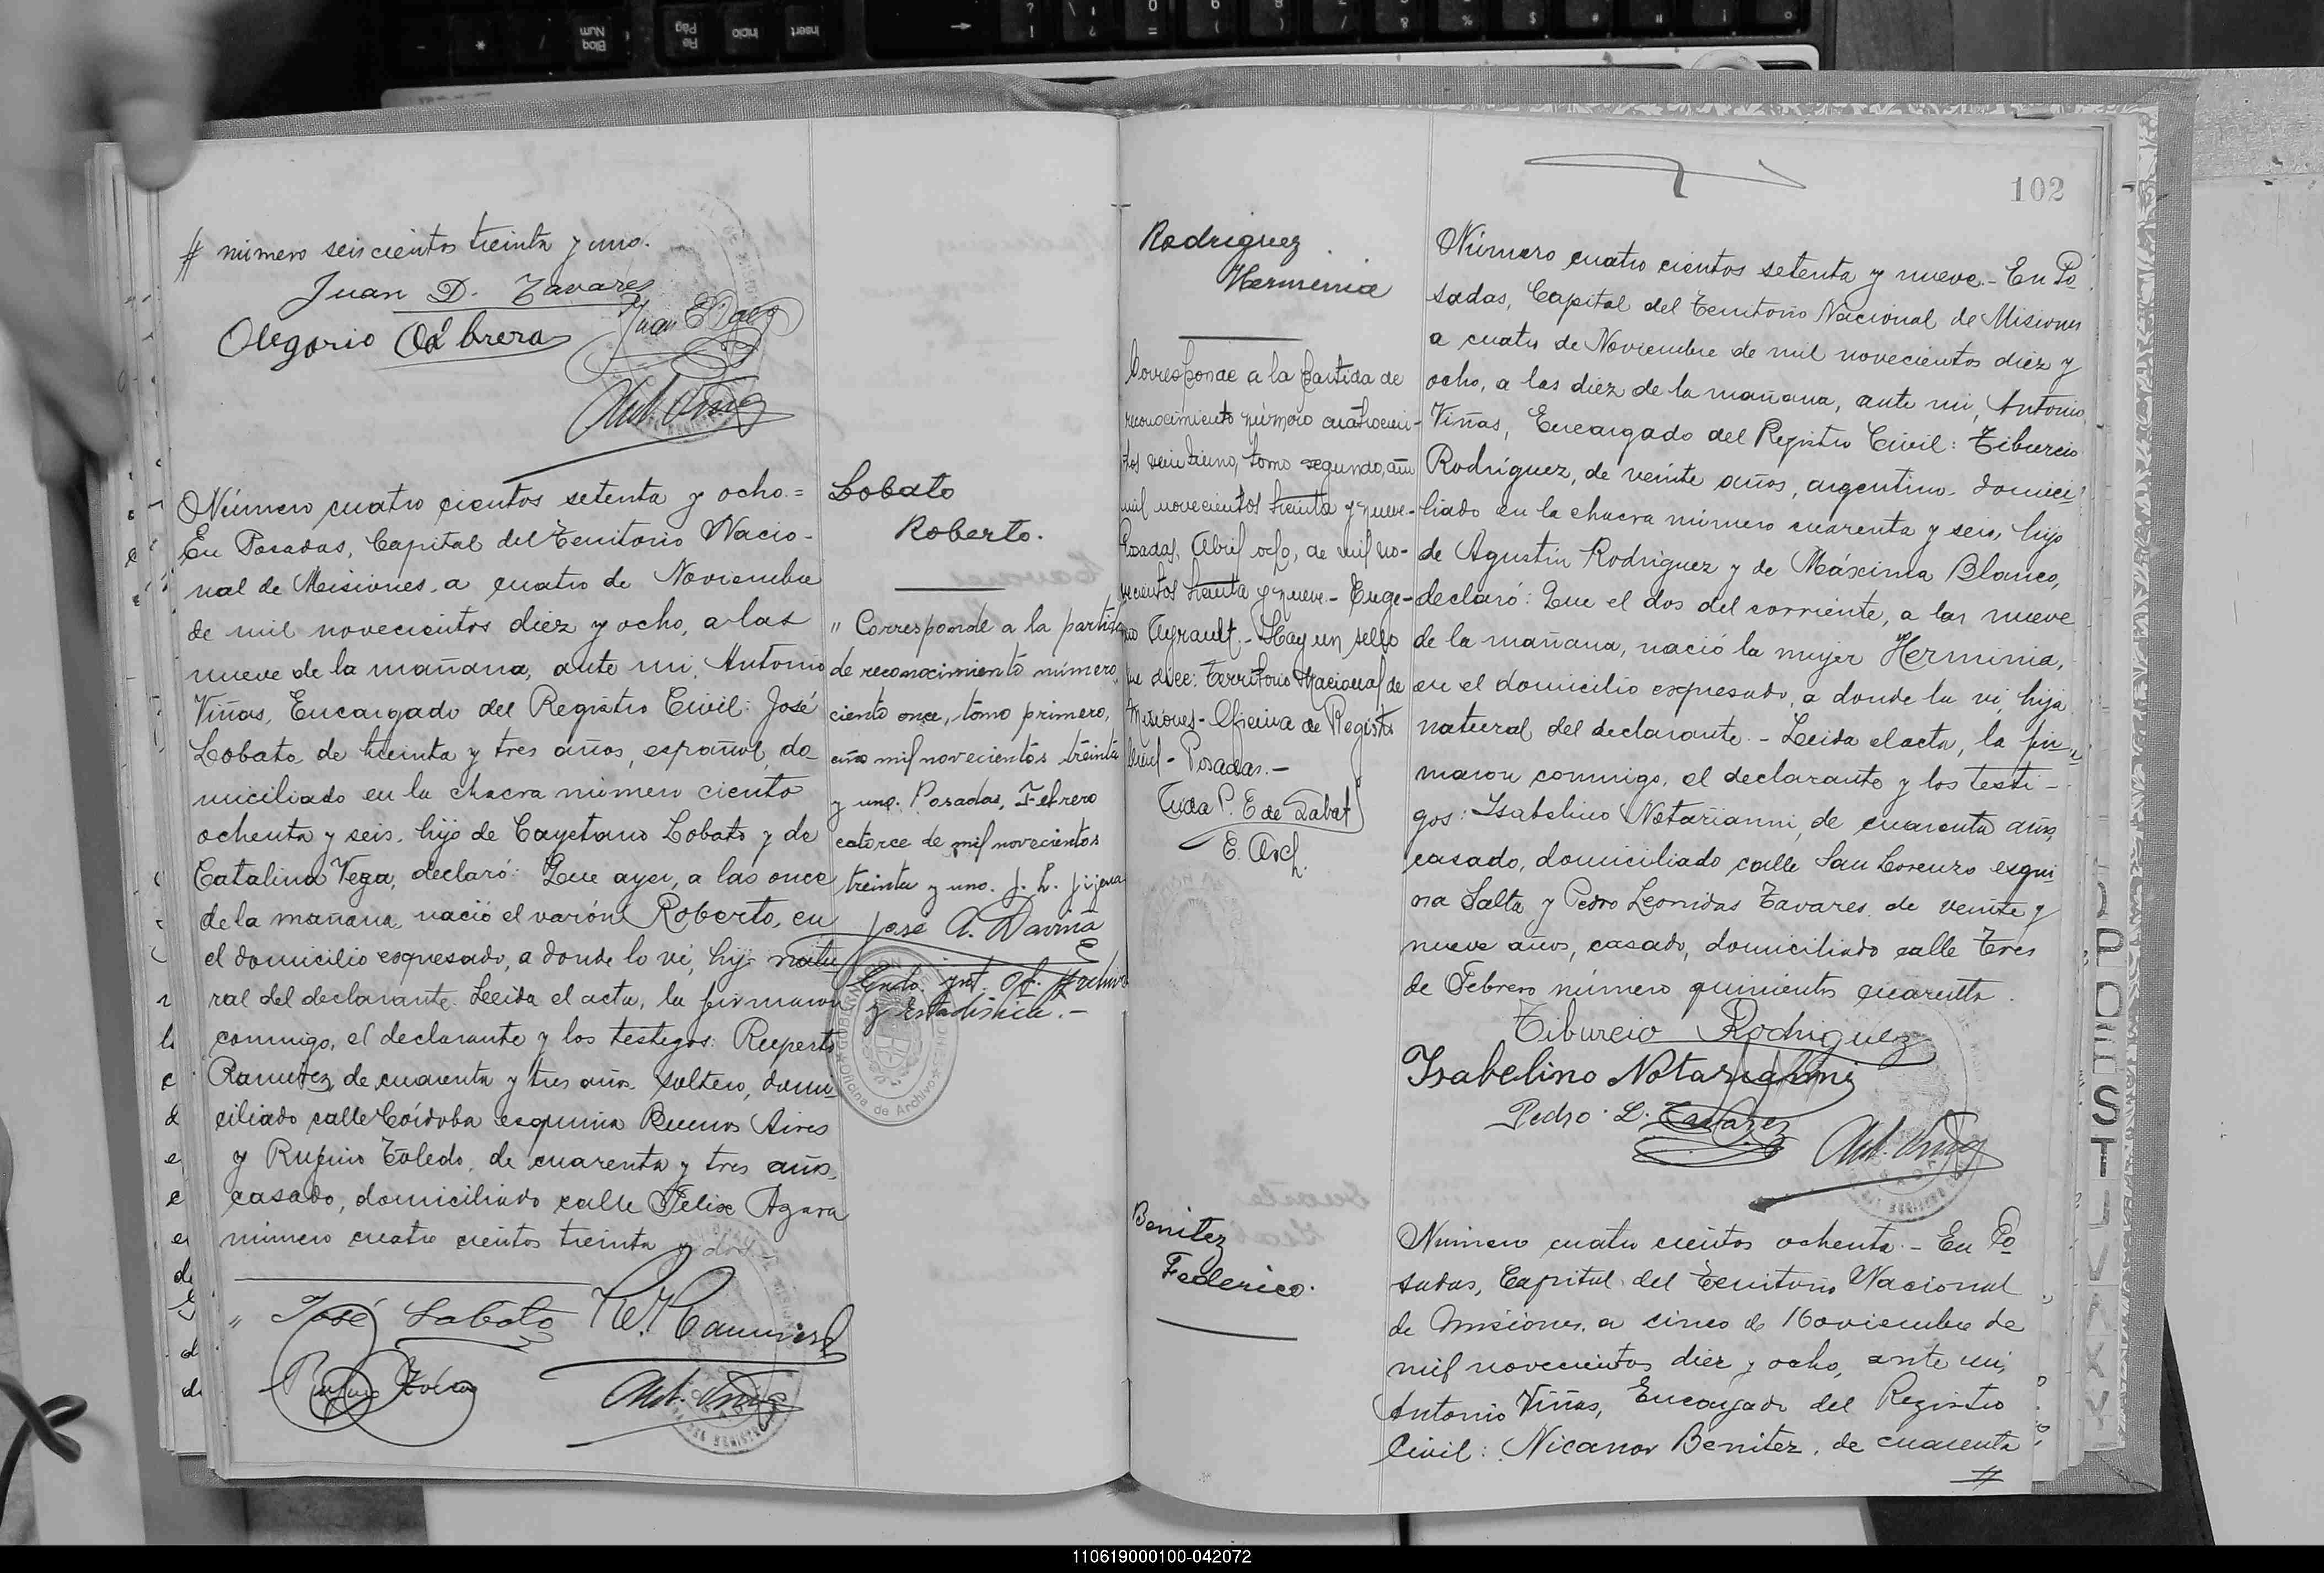 # número seiscientos treinta y uno.
Juan D. Tavares
Olegario Cabrera
Número cuatro cientos setenta y ocho.=
En Posadas, Capital del Territorio Nacio-
nal de Misiones, a cuatro de Noviembre
de mil novecientos diez y ocho, a las
nueve de la mañana, ante mi, Antonio
Viñas, Encargado del Registro Civil: José
Lobato, de treinta y tres años, español, do-
miciliado en la chacra número ciento
ochenta y seis, hijo de Cayetano Lobato y de
Catalina Vega, declaró: Que ayer, a las once
de la mañana, nació el varón Roberto, en
el domicilio expresado, a donde lo vi, hijo natu
ral del declarante. Leida el acta, la firmaron
conmigo, el declarante y los testigos: Ruperto
Ramirez, de cuarenta y tres años, soltero, domi-
ciliado calle Córdoba esquina Buenos Aires
y Rufino Toledo, de cuarenta y tres años,
casado, domiciliado calle Felix Azara
número cuatro cientos treinta y dos.
" José Lobato
Ant. Viñas
Lobato
Roberto.
" Corresponde a la partida
de reconocimiento número
ciento once, tomo primero,
año mil novecientos treinta
y uno. Posadas, Febrero
catorce de mil novecientos
treinta y uno.
José A. Daviña
Of. Archivo
y Estadística.-
Oficina de Archivo
102
Rodriguez
Herminia
Corresponde a la partida de
reconocimiento número cuatrocien-
tos veintiuno, tomo segundo, año
mil novecientos treinta y nueve.-
Posadas, Abril ocho, de mil no-
vecientos treinta y nueve.- Euge-
nio Ayrault.- Hay un sello
que dice: Territorio Nacional de
Misiones- Oficina de Registro
Civil- Posadas.-
E. Arch.
Número cuatro cientos setenta y nueve.- En Po
sadas, Capital del Territorio Nacional de Misiones
a cuatro de Noviembre de mil novecientos diez y
ocho, a las diez de la mañana, ante mi, Antonio
Viñas, Encargado del Registro Civil: Tiburcio
Rodríguez, de veinte años, argentino, domici
liado en la chacra número cuarenta y seis, hijo
de Agustín Rodríguez y de Máxima Blanco,
declaró: Que el dos del corriente, a las nueve
de la mañana, nació la mujer Herminia,
en el domicilio expresado, a donde la vi, hija
natural del declarante.- Leida el acta, la fir-
maron conmigo, el declarante y los testi-
gos: Isabelino Notarianni, de cuarenta años,
casado, domiciliado calle San Lorenzo esqui
na Salta y Pedro Leonidas Tavares, de veinte y
nueve años, casado, domiciliado calle Tres
de Febrero número quinientos cuarenta.
Tiburcio Rodriguez
Isabelino Notarianni
Pedro L. Tavares
Ant. Viñas
Benitez
Federico.
Número cuatro cientos ochenta.- En Po
sadas, Capital del Territorio Nacional
de Misiones, a cinco de Noviembre de
mil novecientos diez y ocho, ante mi,
Antonio Viñas, Encargado del Registro
Civil: Nicanor Benitez, de cuarenta
#
110619000100-042072